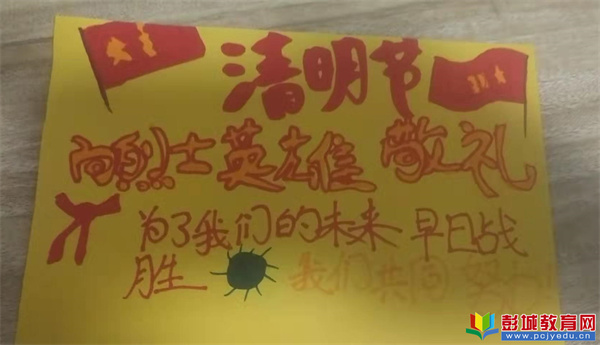 清明节
向烈士英雄 敬礼
为了我们的未来 早日战
胜 我们共同努
彭城教育网
www.pcjyedu.cn